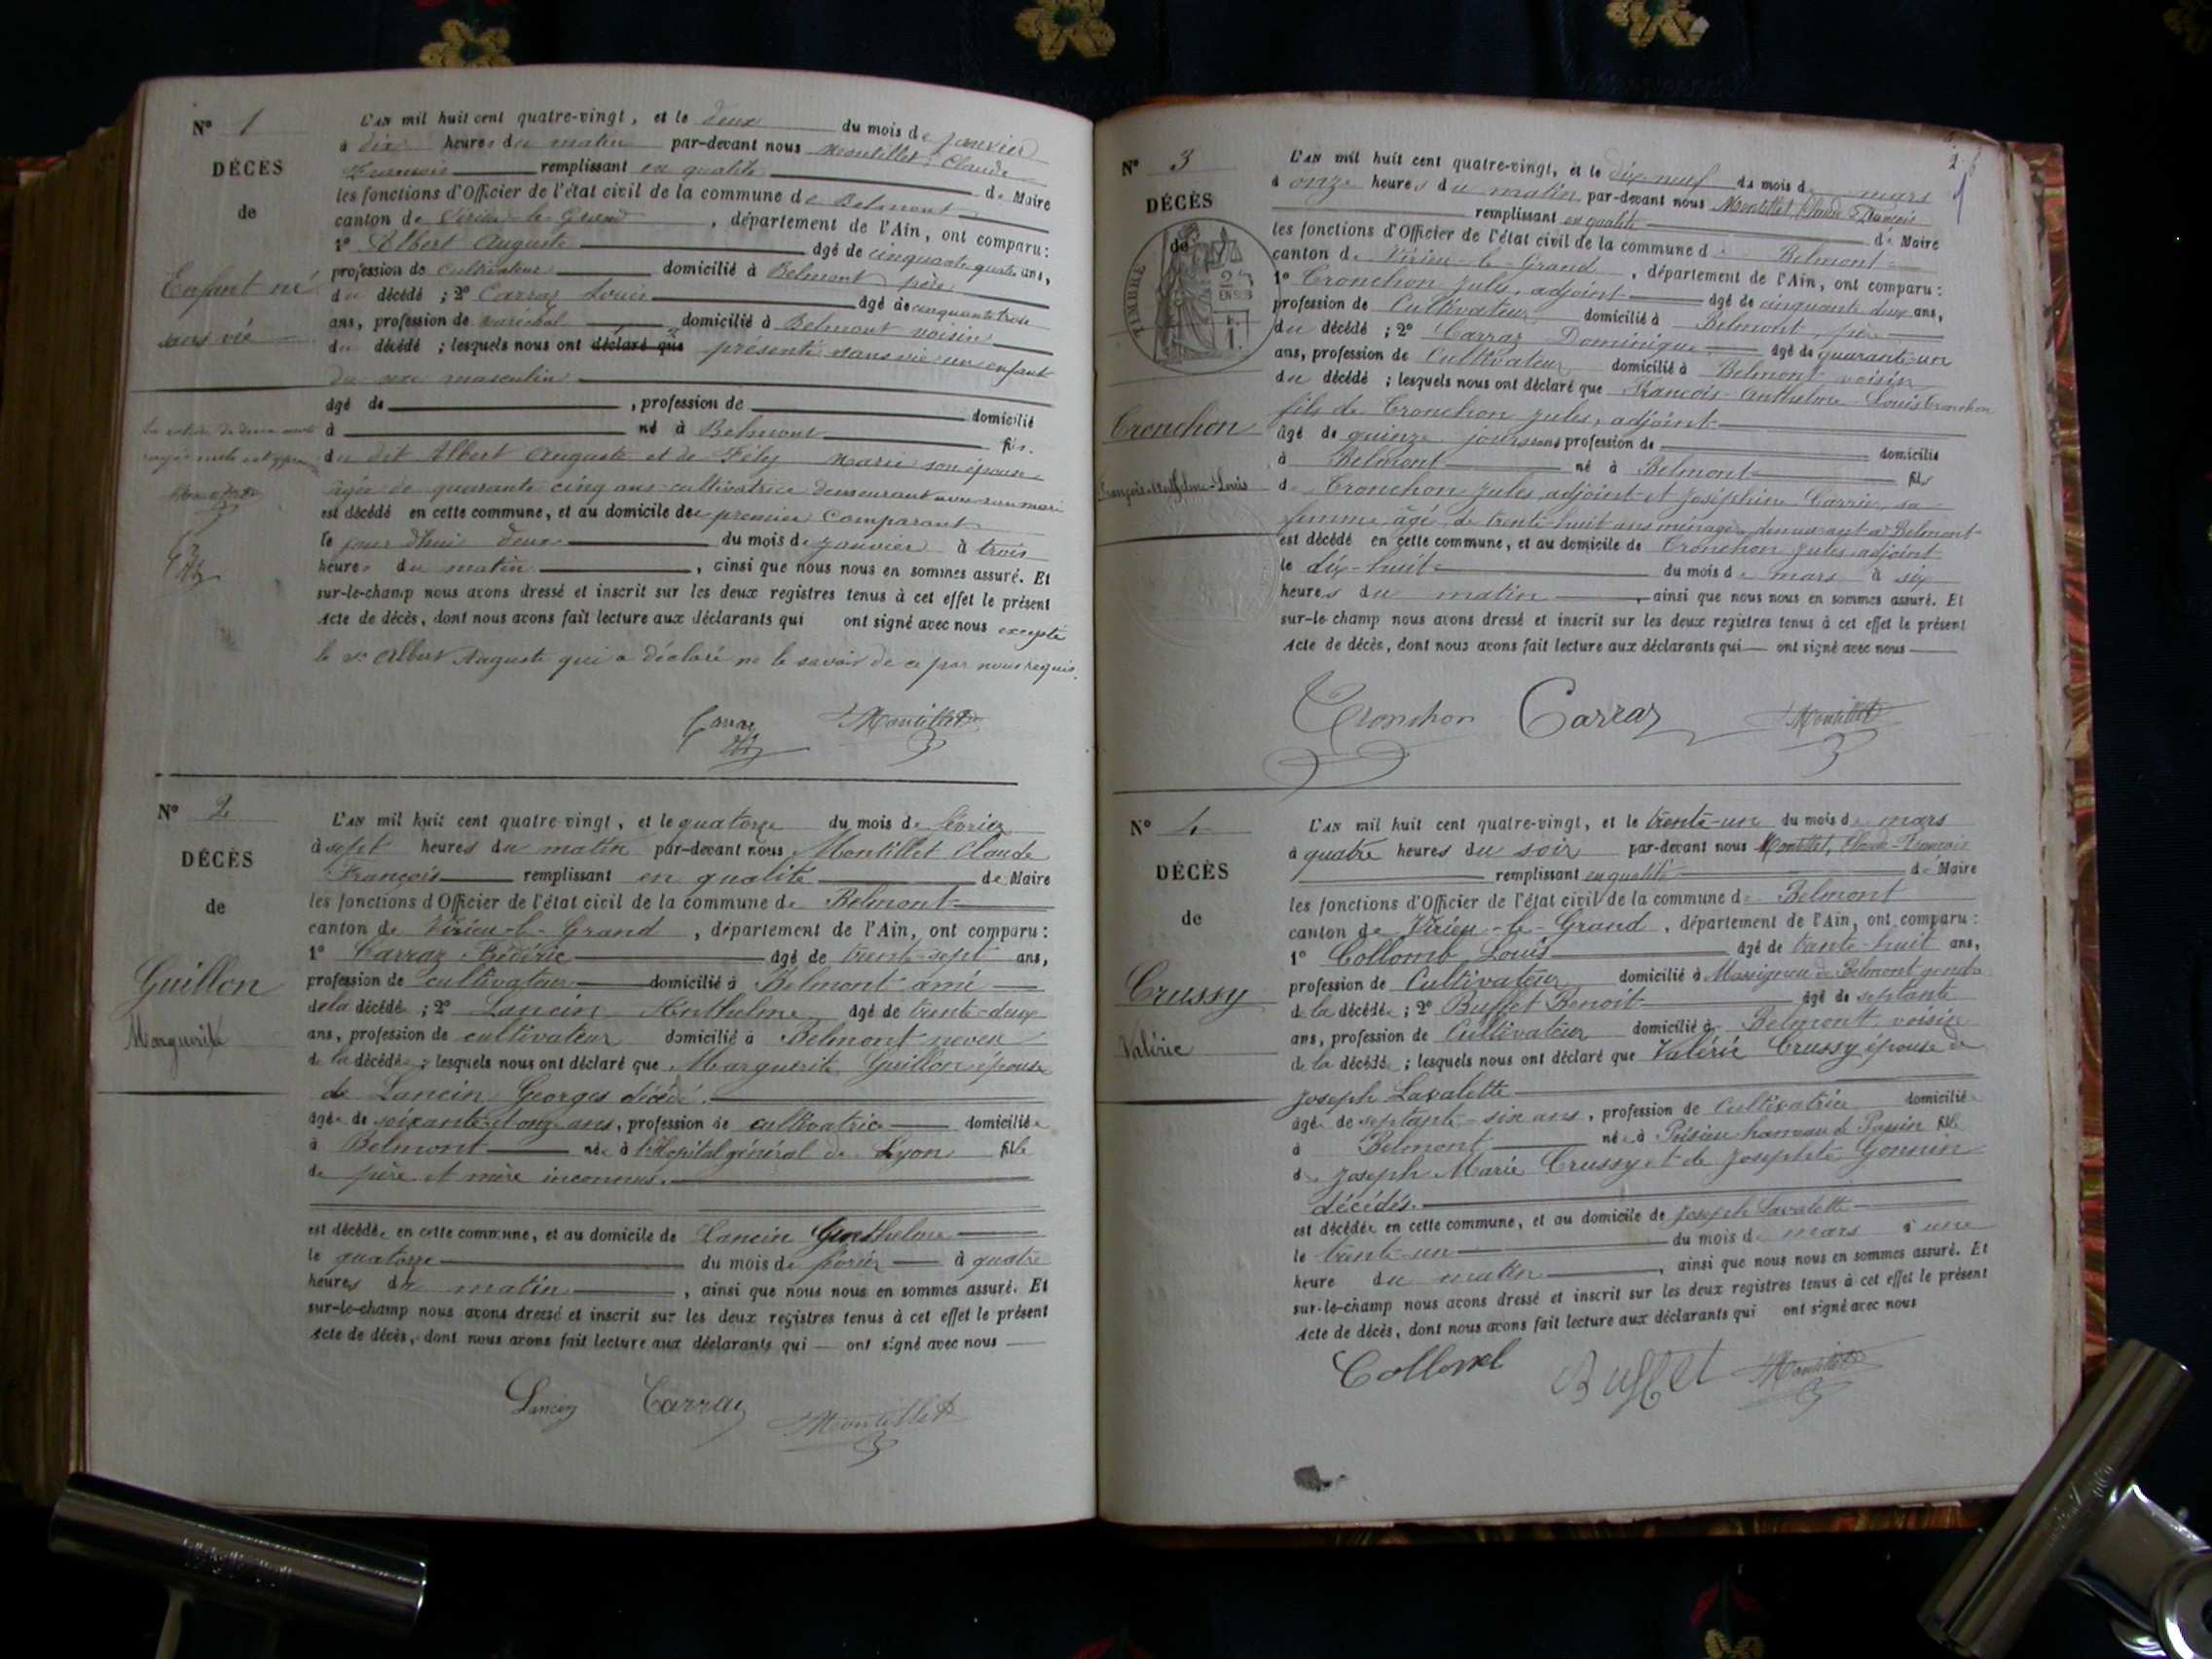 N° 1
DÉCÈS
de
Enfant né
sans vie
L'AN mil huit cent quatre-vingt, et le deux du mois de janvier
à dix heures du matin par-devant nous Montillet, Claude
François remplissant en qualité de Maire
les fonctions d'Officier de l'état civil de la commune de Belmont
canton de Virieu-le-Grand, département de l'Ain, ont comparu :
1° Albert Auguste âgé de cinquante quatre ans,
profession de cultivateur domicilié à Belmont père
du décédé ; 2° Carraz Louis âgé de cinquante trois
ans, profession de maréchal domicilié à Belmont voisin
du décédé ; lesquels nous ont déclaré que présenté sans vie un enfant
du sexe masculin
âgé de , profession de domicilié
à né à Belmont fils
du dit Albert Auguste et de Marie son épouse
âgée de quarante cinq ans cultivatrice demeurant avec son mari
est décédé en cette commune, et au domicile de premier comparant
le jour d'hui deux du mois de janvier à trois
heures du matin , ainsi que nous nous en sommes assuré. Et
sur-le-champ nous avons dressé et inscrit sur les deux registres tenus à cet effet le présent
Acte de décès, dont nous avons fait lecture aux déclarants qui ont signé avec nous excepté
le sr Albert Auguste qui a déclaré ne le savoir de ce par nous requis.
Carraz Montillet
N° 2
DÉCÈS
de
Guillon
Marguerite
L'AN mil huit cent quatre-vingt, et le quatorze du mois de février
à sept heures du matin par-devant nous Montillet Claude
François remplissant en qualité de Maire
les fonctions d'Officier de l'état civil de la commune de Belmont
canton de Virieu-le-Grand, département de l'Ain, ont comparu :
1° Carraz Frédéric âgé de trente-sept ans,
profession de cultivateur domicilié à Belmont ami
de la décédée ; 2° Lancin Anthelme âgé de trente-deux
ans, profession de cultivateur domicilié à Belmont neveu
de la décédée ; lesquels nous ont déclaré que Marguerite Guillon épouse
de Lancin Georges décédé.
âgée de soixante et onze ans, profession de cultivatrice domiciliée
à Belmont née à l'Hopital général de Lyon fille
de père et mère inconnus.
est décédée en cette commune, et au domicile de Lancin Anthelme
le quatorze du mois de février à quatre
heures du matin , ainsi que nous nous en sommes assuré. Et
sur-le-champ nous avons dressé et inscrit sur les deux registres tenus à cet effet le présent
Acte de décès, dont nous avons fait lecture aux déclarants qui ont signé avec nous
Lancin Carraz Montillet
N° 3
DÉCÈS
de
TIMBRE
Cronchon
François-Anthelme-Louis
L'AN mil huit cent quatre-vingt, et le dix neuf du mois de mars
à onze heures du matin, par-devant nous Montillet, Claude François
remplissant en qualité de Maire
les fonctions d'Officier de l'état civil de la commune de Belmont
canton de Virieu-le-Grand, département de l'Ain, ont comparu :
1° Cronchon Jules, adjoint âgé de cinquante deux ans,
profession de Cultivateur domicilié à Belmont, père
du décédé ; 2° Carraz Dominique âgé de quarante-un
ans, profession de Cultivateur domicilié à Belmont voisin
du décédé ; lesquels nous ont déclaré que François-Anthelme-Louis Cronchon
fils de Cronchon Jules, adjoint
âgé de quinze jours sans profession de domicilié
à Belmont né à Belmont fils
de Cronchon Jules, adjoint et Joséphine Carrier, sa
femme, âgé, de trente-huit ans ménagère, demeurant à Belmont
est décédé en cette commune, et au domicile de Cronchon Jules adjoint
le dix-huit du mois de mars à six
heures du matin , ainsi que nous nous en sommes assuré. Et
sur-le-champ nous avons dressé et inscrit sur les deux registres tenus à cet effet le présent
Acte de décès, dont nous avons fait lecture aux déclarants qui ont signé avec nous
Cronchon Carraz Montillet
N° 4
DÉCÈS
de
Crussy
Valérie
L'AN mil huit cent quatre-vingt, et le trente-un du mois de mars
à quatre heures du soir par-devant nous Montillet, Claude-François
remplissant en qualité de Maire
les fonctions d'Officier de l'état civil de la commune de Belmont
canton de Virieu-le-Grand, département de l'Ain, ont comparu :
1° Collomb Louis âgé de trente-huit ans,
profession de Cultivateur domicilié à Massignieu de Belmont gendre
de la décédée ; 2° Buffet Benoit âgé de septante
ans, profession de Cultivateur domicilié à Belmont voisin
de la décédée ; lesquels nous ont déclaré que Valérie Crussy épouse de
Joseph Lavalette
âgée de septante-six ans, profession de Cultivatrice domiciliée
à Belmont née à hameau de fille
de Joseph Marie Crussy et de Josephte Gonnin
décédés.
est décédée en cette commune, et au domicile de Joseph Lavalette
le trente-un du mois de mars à une
heure du matin , ainsi que nous nous en sommes assuré. Et
sur-le-champ nous avons dressé et inscrit sur les deux registres tenus à cet effet le présent
Acte de décès, dont nous avons fait lecture aux déclarants qui ont signé avec nous
Collomb Buffet Montillet